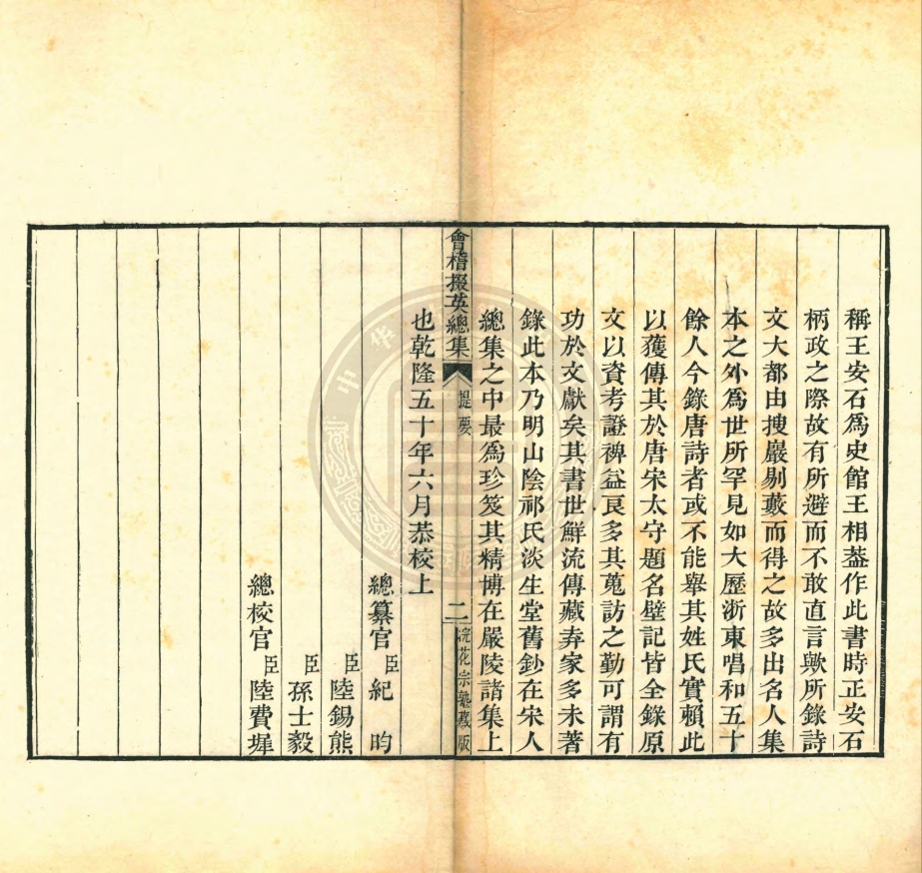 稱王安石爲史館王相葢作此書時正安石
柄政之際故有所避而不敢直言歟所錄詩
文大都由搜巖剔藪而得之故多出名人集
本之外爲世所罕見如大歷浙東唱和五十
餘人今錄唐詩者或不能舉其姓氏實賴此
以獲傳其於唐宋太守題名壁記皆全錄原
文以資考證裨益良多其蒐訪之勤可謂有
功於文獻矣其書世鮮流傳藏弆家多未著
錄此本乃明山陰祁氏淡生堂舊鈔在宋人
總集之中最爲珍笈其精博在嚴陵諸集上
也乾隆五十年六月恭校上
會稽掇英總集 提要 二 浣花宗塾藏版
總纂官臣紀昀
臣陸錫熊
臣孫士毅
總校官臣陸費墀